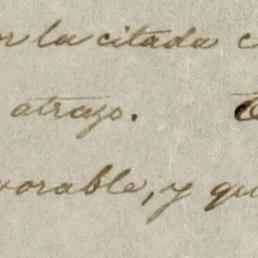 or la citada
atrazo.
vorable, y qu